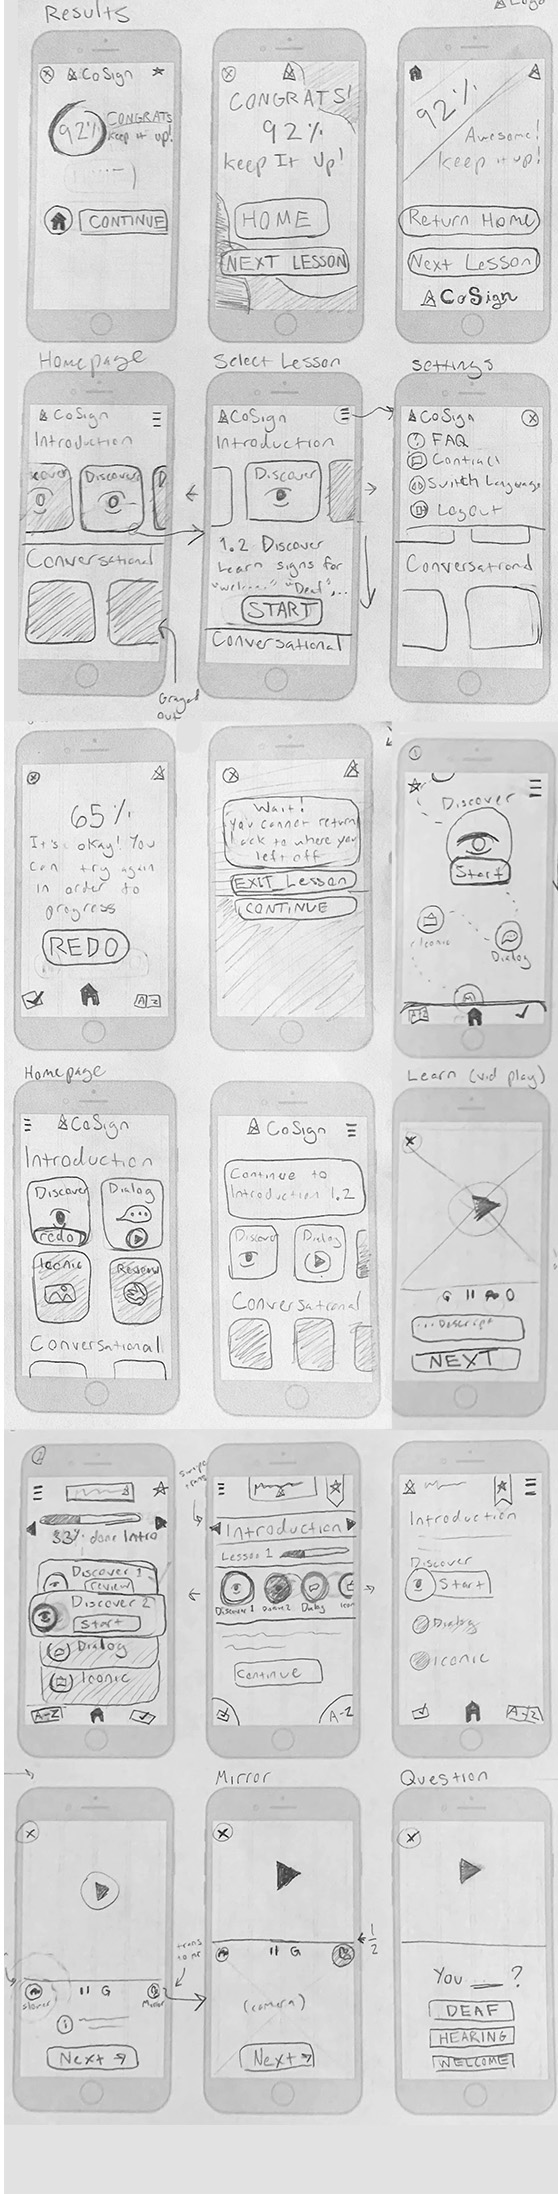 Results
Logo
CoSign
92%
CONGRATS
keep it up!
CONTINUE
CONGRATS!
92%
keep It Up!
HOME
NEXT LESSON
92%
Awesome!
keep it up!
Return Home
Next Lesson
CoSign
Homepage
Select Lesson
Settings
CoSign
Introduction
Discover
Conversational
Grayed
out
CoSign
Introduction
Discover
1.2 Discover
Learn signs for
"Deaf",...
START
Conversational
CoSign
FAQ
Switch Language
Logout
Conversational
65%
It's okay! You
can try again
in order to
progress
REDO
A Z
Wait!
You cannot return
back to where you
left off
EXIT Lesson
CONTINUE
1
Discover
Start
Iconic
Dialog
A Z
Homepage
Learn (vid play)
CoSign
Introduction
Discover
Dialog
redo
Iconic
Review
Conversational
CoSign
Continue to
Introduction 1.2
Discover
Dialog
Conversational
... Descript
NEXT
2
33% done Intro
Discover 1
review
Discover 2
Start
Dialog
Iconic
A-Z
Introduction
Lesson 1
Discover 1
Dialog
Continue
A-Z
Introduction
Discover
Start
Dialog
Iconic
A-Z
Mirror
Question
slower
Mirror
Next
1/2
(camera)
Next
You ___ ?
DEAF
HEARING
WELCOME